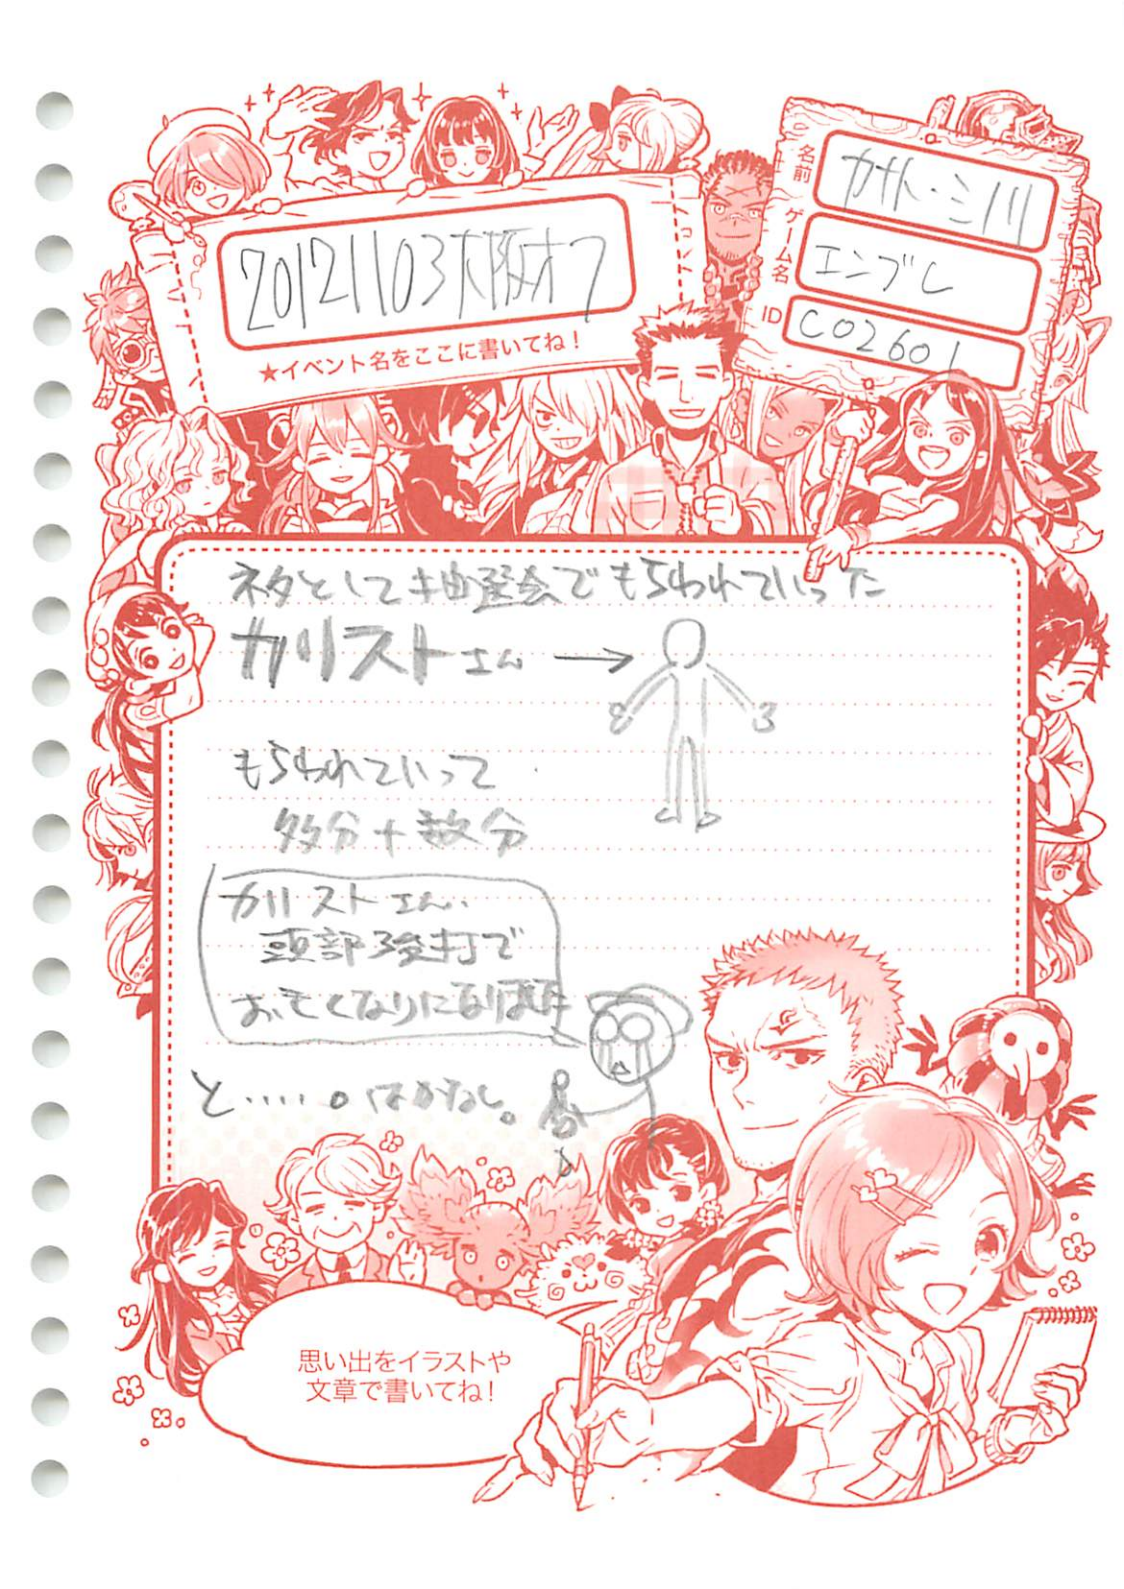 20121103大阪オフ
★イベント名をここに書いてね！
名前
カサト・ミノリ
ゲーム名
エンブレ
ID
C02601
ネタとして抽選会でもらわれていった
カリストさん →
もらわれていって
多分＋数分
カリストさん、
頭部強打で
おなくなりになり
と‥‥。はかなし。
思い出をイラストや
文章で書いてね！